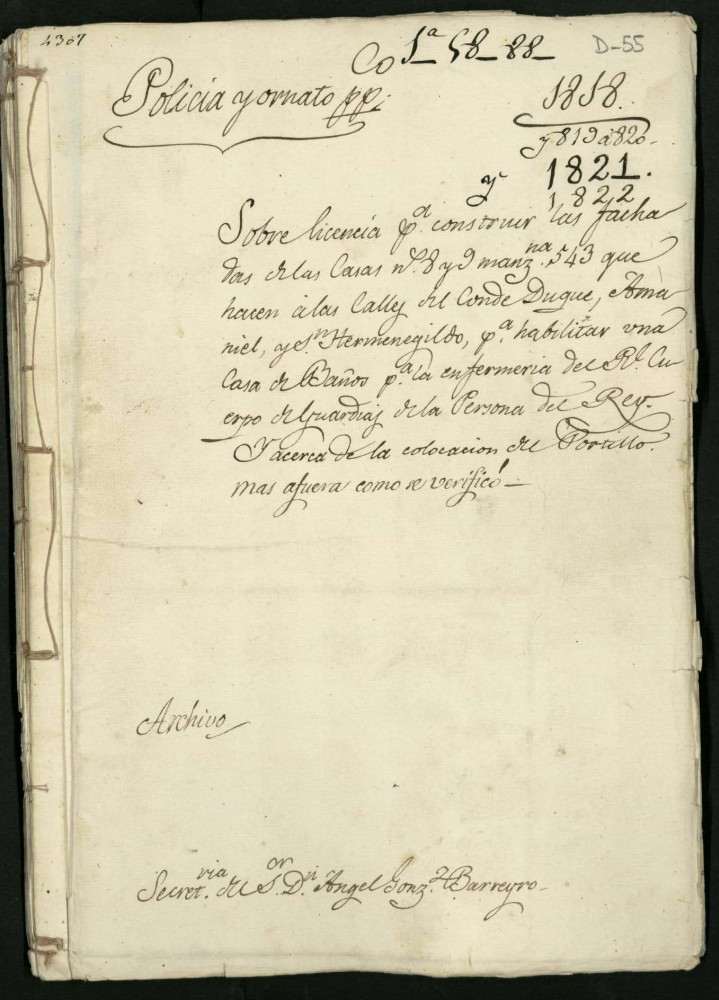 4307
Co 1ª 58-88-
D-55
Policía y ornato pp.
1818.
y 819 a 820.
y 1821.
1822
Sobre licencia pª construir las facha
das de las Casas nº 8 y 9 manzna 543 que
hacen à las Calles del Conde Duque, Ama
niel, y Sn Hermenegildo, pª habilitar una
Casa de Baños pª la enfermeria del Rl Cu
erpo de Guardias de la Persona del Rey.
Y acerca de la colocacion del Portillo
mas afuera como se verificó
Archivo
Secretria del Sor Dn Angel Gonzz Barreyro